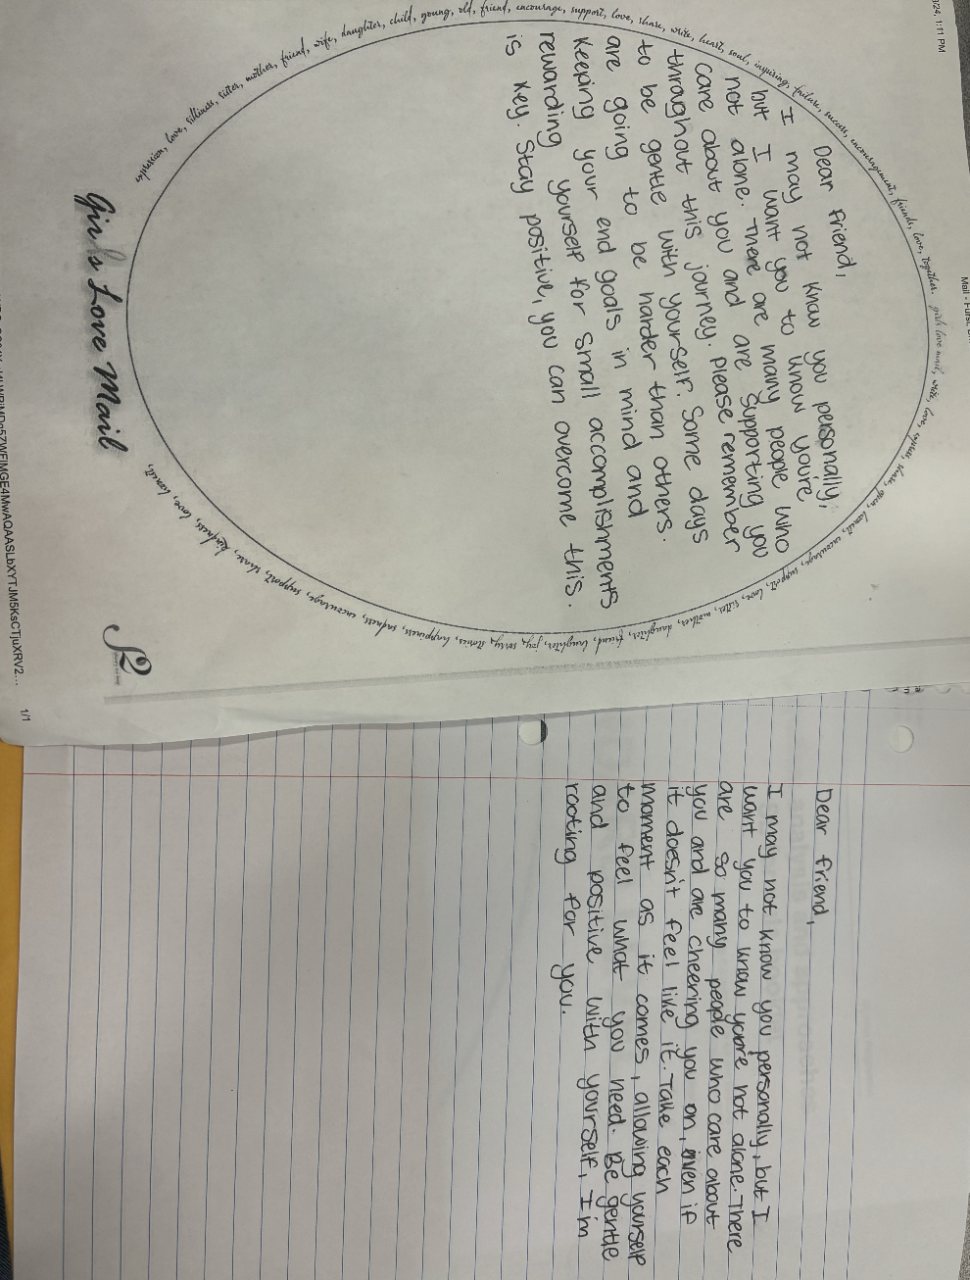 /24, 1:11 PM
Mail - Furst, 
Dear friend,
I may not know you personally,
but I want you to know you're
not alone. There are many people who
care about you and are supporting you
throughout this journey. Please remember
to be gentle with yourself. Some days
are going to be harder than others.
Keeping your end goals in mind and
rewarding yourself for small accomplishments
is key. Stay positive, you can overcome this.
expression, love, silliness, sister, mother, friend, wife, daughter, child, young, old, friend, encourage, support, love, share, write, heart, soul, inspiring, failure, success, encouragement, friends, love, together, girls love mail, write, love, express, share, open, honest, encourage, support, love, sister, mother, daughter, friend, laughter, joy, sorry, stories, happiness, sadness, encourage, share, support, kindness, love, honest,
Girls Love Mail
1/1
Dear friend,
I may not know you personally, but I
want you to know you're not alone. There
are so many people who care about
you and are cheering you on, even if
it doesn't feel like it. Take each
moment as it comes, allowing yourself
to feel what you need. Be gentle
and positive with yourself, I'm
rooting for you.